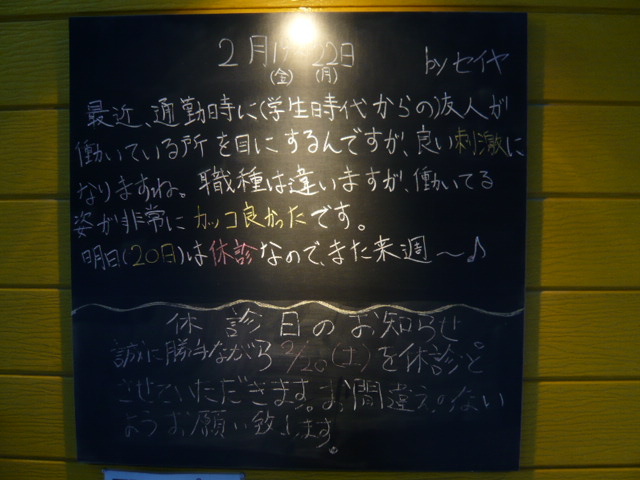 2月19 22日
(金) (月)
byセイヤ
最近、通勤時に(学生時代からの)友人が
働いている所を目にするんですが、良い刺激に
なりますね。職種は違いますが、働いてる
姿が非常にカッコ良かったです。
明日(20日)は休診なので、また来週〜♪
休診日のお知らせ
誠に勝手ながら2/20(土)を休診と
させていただきます。お間違えのない
ようお願い致します。